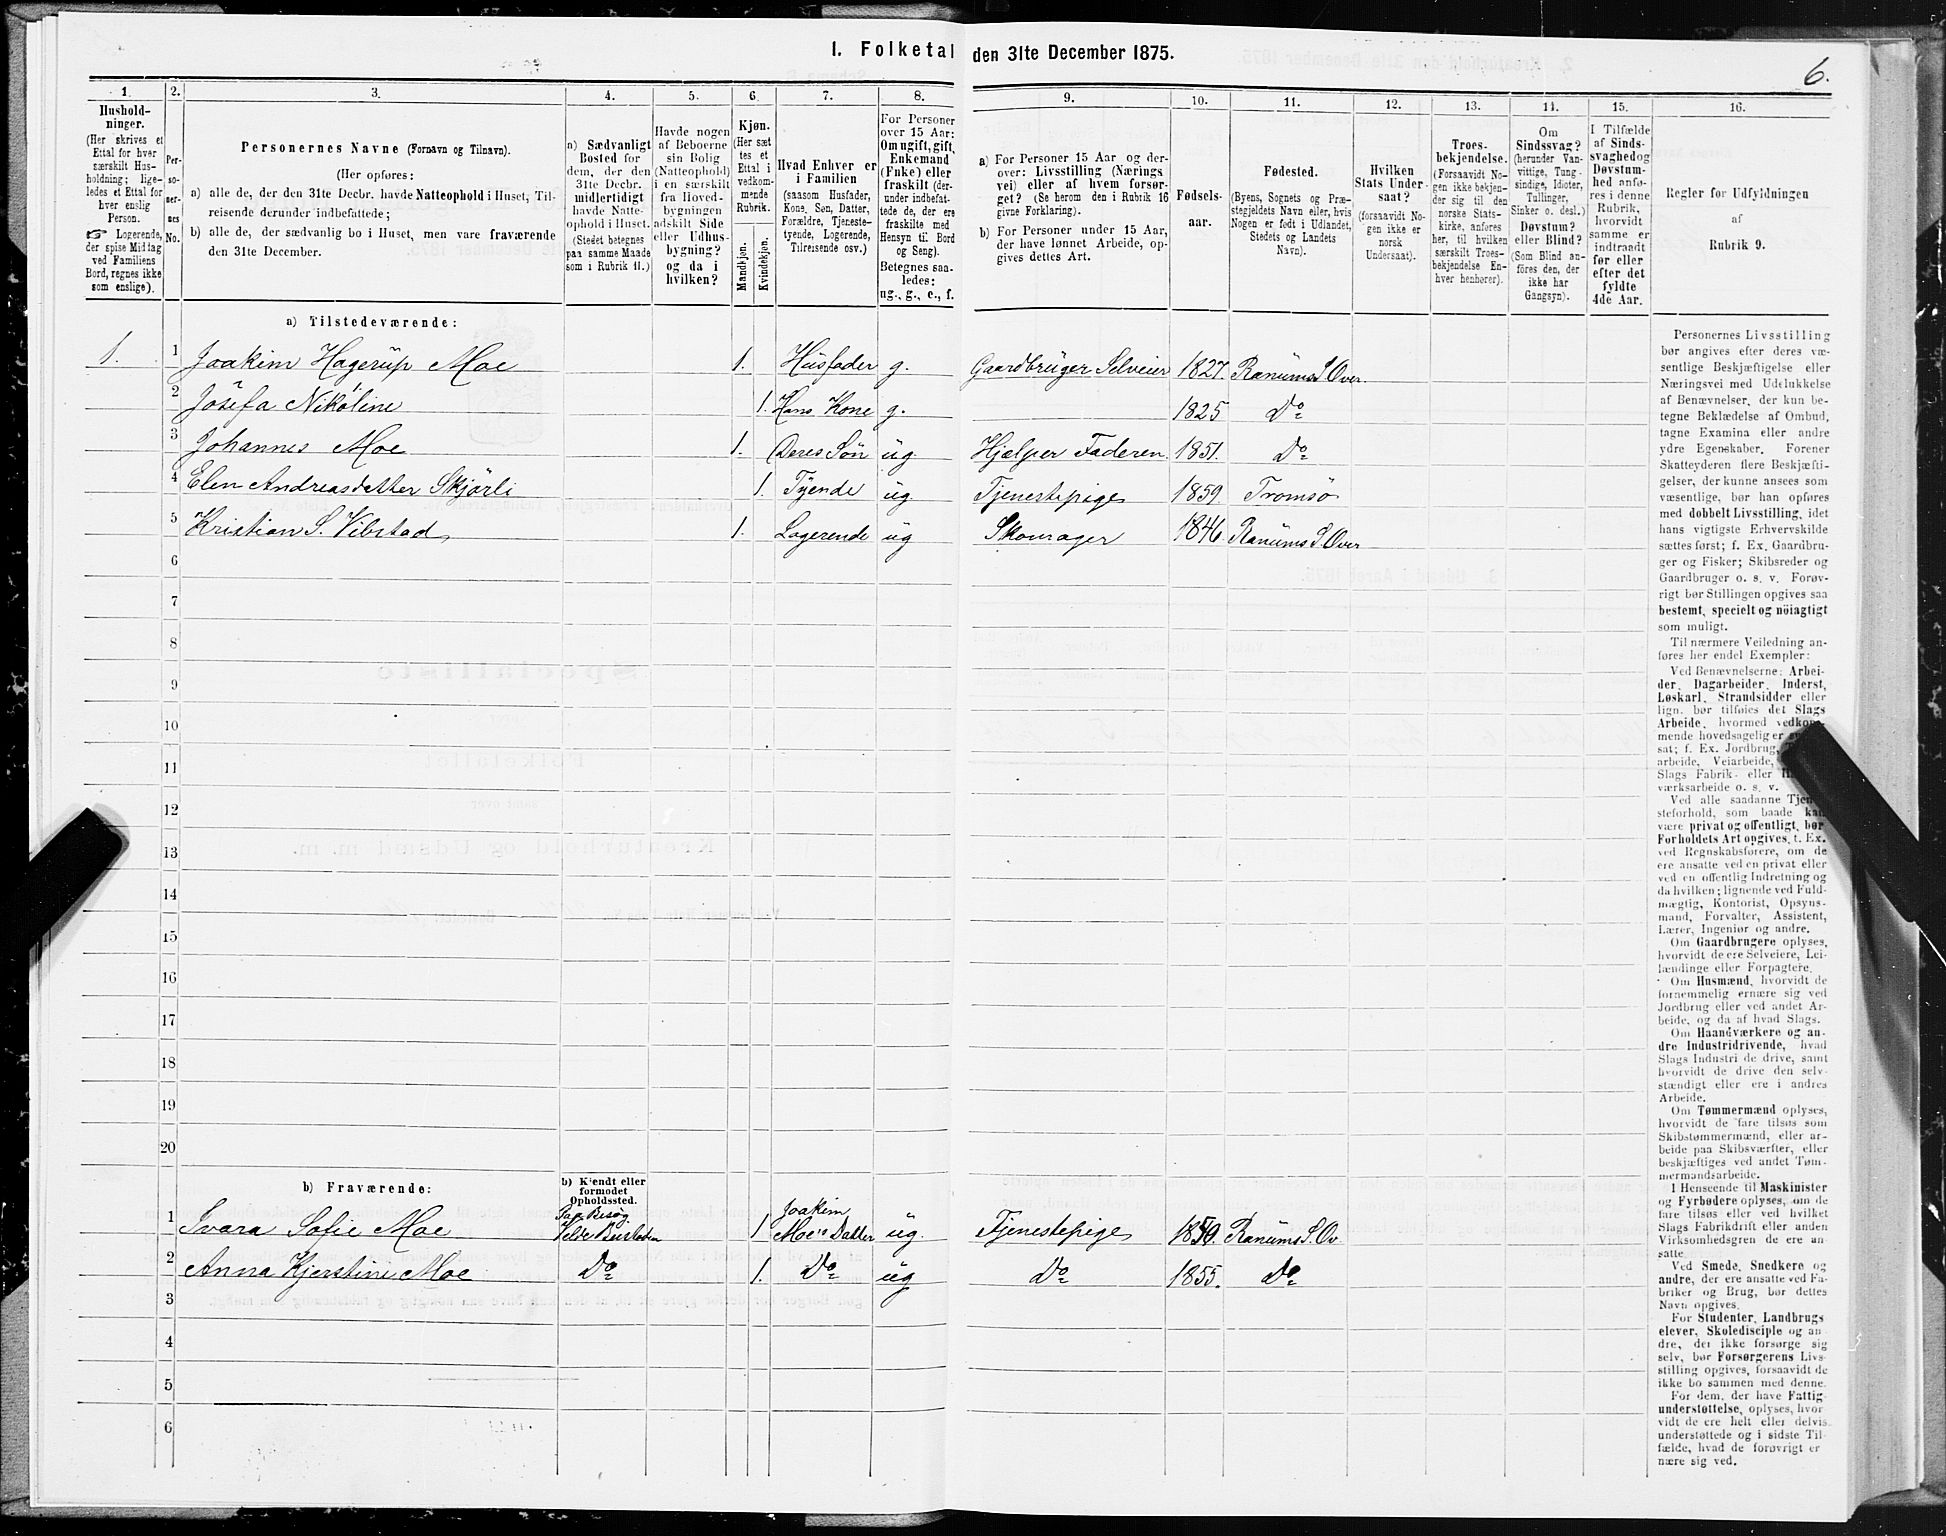 I. Folketal den 31te December 1875.
6.
1.
Hushold-
ninger.
(Her skrives et
Ettal for hver
særskilt Hus-
holdning; lige-
ledes et Ettal for
hver enslig
Person.
☞ Logerende,
der spise Middag
ved Familiens
Bord, regnes ikke
som enslige).
2.
Per-
so-
ner-
nes
No.
3.
Personernes Navne (Fornavn og Tilnavn).
(Her opføres:
a) alle de, der den 31te Decbr. havde Natteophold i Huset, Til-
reisende derunder indbefattede;
b) alle de, der sædvanlig bo i Huset, men vare fraværende
den 31te December.
4.
a) Sædvanligt
Bosted for
dem, der den
31te Decbr.
midlertidigt
havde Natte-
ophold i Huset.
(Stedet betegnes
paa samme Maade
som i Rubrik 11.)
5.
Havde nogen
af Beboerne
sin Bolig
(Natteophold)
i en særskilt
fra Hoved-
bygningen
adskilt Side
eller Udhus-
bygning?
og da i
hvilken?
6.
Kjøn.
(Her sæt
tes et
Ettal i
vedkom-
mende
Rubrik.
Mandkjøn.
Kvindekjøn.
7.
Hvad Enhver er
i Familien
(saasom Husfader,
Kone, Søn, Datter,
Forældre, Tjeneste-
tyende, Logerende,
Tilreisende osv.)
8.
For Personer
over 15 Aar:
Om ugift, gift,
Enkemand
(Enke) eller
fraskilt (der-
under indbefat-
tede de, der ere
fraskilte med
Hensyn til Bord
og Seng).
Betegnes saa-
ledes:
ug., g., e., f.
9.
a) For Personer 15 Aar og der-
over: Livsstilling (Nærings
vei) eller af hvem forsør-
get? (Se herom den i Rubrik 16
givne Forklaring).
b) For Personer under 15 Aar,
der have lønnet Arbeide, op-
gives dettes Art.
10.
Fødsels-
aar.
11.
Fødested.
(Byens, Sognets og Præ-
stegjeldets Navn eller, hvis
Nogen er født i Udlandet,
Stedets og Landets
Navn).
12.
Hvilken
Stats Under-
saat?
(forsaavidt No-
gen ikke er
norsk
Undersaat).
13.
Troes-
bekjendelse.
(Forsaavidt No-
gen ikke bekjen-
der sig til den
norske Stats-
kirke, anføres
her, til hvilken
særskilt Troes-
bekjendelse En-
hver henhører).
14.
Om
Sindssvag?
(herunder Van-
vittige, Tung-
sindige, Idioter,
Tullinger,
Sinker o. desl.)
Døvstum?
eller Blind?
(Som Blind an-
føres den, der
ikke har
Gangsyn).
15.
I Tilfælde
af Sinds-
svaghed og
Døvstum-
hed anfø-
res i denne
Rubrik,
hvorvidt
samme er
indtraadt
før eller
efter det
fyldte
4de Aar.
16.
Regler før Udfyldningen
af
Rubrik 9.
a) Tilstedeværende:
1. 1 Joakim Hagerup Moe 1. Husfader g. Gaardbruger Selveier 1827. Ranums S. Over.
2 Josefa Nikoline 1. Hans Kone g. 1825 Do
3 Johannes Moe 1. Deres Søn ug. Hjælper Faderen 1851. Do
4 Elen Andreasdatter Skjörli 1. Tyende ug. Tjenestepige 1859. Tromsö
5 Kristian S. Vibstad 1. Logerende ug Skomager 1846. Ranums S. Over
6
7
8
9
10
11
12
13
14
15
16
17
18
19
20
b) Fraværende:
b) Kjendt eller
formodet
Opholdssted.
1 Svara Sofie Moe Paa Besøg 1 Joakim Moe's Datter ug. Tjenestepige 1850. Ranums S. Ov.
2 Anna Kjerstine Moe Do 1. Do ug Do 1855. Do
3
4
5
6
Personernes Livsstilling
bør angives efter deres væ-
sentlige Beskjæftigelse eller
Næringsvei med Udelukkelse
af Benævnelser, der kun be-
tegne Beklædelse af Ombud,
tagne Examina eller andre
ydre Egenskaber. Forener
Skatteyderen flere Beskjæfti-
gelser, der kunne ansees som
væsentlige, bør han opføres
med dobbelt Livsstilling, idet
hans vigtigste Erhvervskilde
sættes først; f. Ex. Gaardbru-
ger og Fisker; Skibsreder og
Gaardbruger o. s. v. Forøv-
rigt bør Stillingen opgives saa
bestemt, specielt og nöiagtigt
som muligt.
Til nærmere Veiledning an-
føres her endel Exempler:
Ved Benævnelserne: Arbei-
der, Dagarbeider, Inderst,
Løskarl, Strandsidder eller
lign. bør tilføies det Slags
Arbeide, hvormed vedkom-
mende hovedsagelig er
sat; f. Ex. Jordbrug,
arbeide, Veiarbeide,
Slags Fabrik- eller
værksarbeide o. s. v.
Ved alle saadanne Tjene-
steforhold, som baade kan
være privat og offentligt, bør
Forholdets Art opgives, t. Ex.
ved Regnskabsførere, om de
ere ansatte ved en privat eller
ved en offentlig Indretning og
da hvilken; lignende ved Fuld-
mægtig, Kontorist, Opsyns-
mand, Forvalter, Assistent,
Lærer, Ingeniør og andre.
Om Gaardbrugere oplyses,
hvorvidt de ere Selveiere, Lei-
lændinge eller Forpagtere.
Om Husmænd, hvorvidt de
fornemmelig ernære sig ved
Jordbrug eller ved andet Ar-
beide, og da af hvad Slags.
Om Haandværkere og an-
dre Industridrivende, hvad
Slags Industri de drive, samt
hvorvidt de drive den selv-
stændigt eller ere i andres
Arbeide.
Om Tømmermænd oplyses,
hvorvidt de fare tilsøs som
Skibstømmermænd, eller ar-
beide paa Skibsværfter, eller
beskjæftiges ved andet Tøm-
mermandsarbeide.
I Henseende til Maskinister
og Fyrbødere oplyses, om de
fare tilsøs eller ved hvilket
Slags Fabrikdrift eller anden
Virksomhedsgren de ere an-
satte
Ved Smede, Snedkere og
andre, der ere ansatte ved Fa-
briker og Brug, bør dettes
Navn opgives.
For Studenter, Landbrugs
elever, Skoledisciple og an
dre, der ikke forsørge sig
selv, bør Forsørgerens Livs-
stilling opgives, forsaavidt de
ikke bo sammen med denne.
For dem, der have Fattig
understøttelse, oplyses, hvor
vidt de ere helt eller delvis
understøttede og i sidste Til-
fælde, hvad de forøvrigt er
nære sig ved.